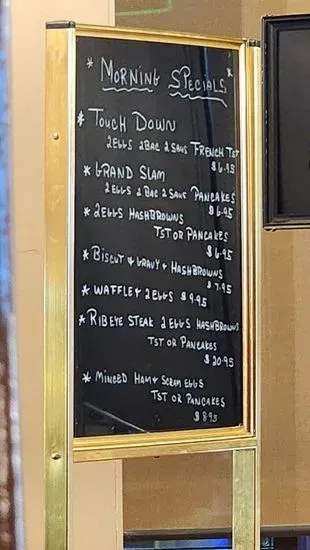 * Morning Specials *
* Touch Down
2 Eggs 2 Bac 2 Saus French Tst
$ 6.95
* Grand Slam
2 Eggs 2 Bac 2 Saus Pancakes
$ 6.95
* 2 Eggs Hashbrowns
Tst or Pancakes
$ 6.95
* Biscut & Gravy & Hashbrowns
$ 7.95
* Waffle & 2 Eggs $ 9.95
* Ribeye Steak 2 Eggs Hashbrowns
Tst or Pancakes
$ 20.95
* Minced Ham & Scram Eggs
Tst or Pancakes
$ 8.95